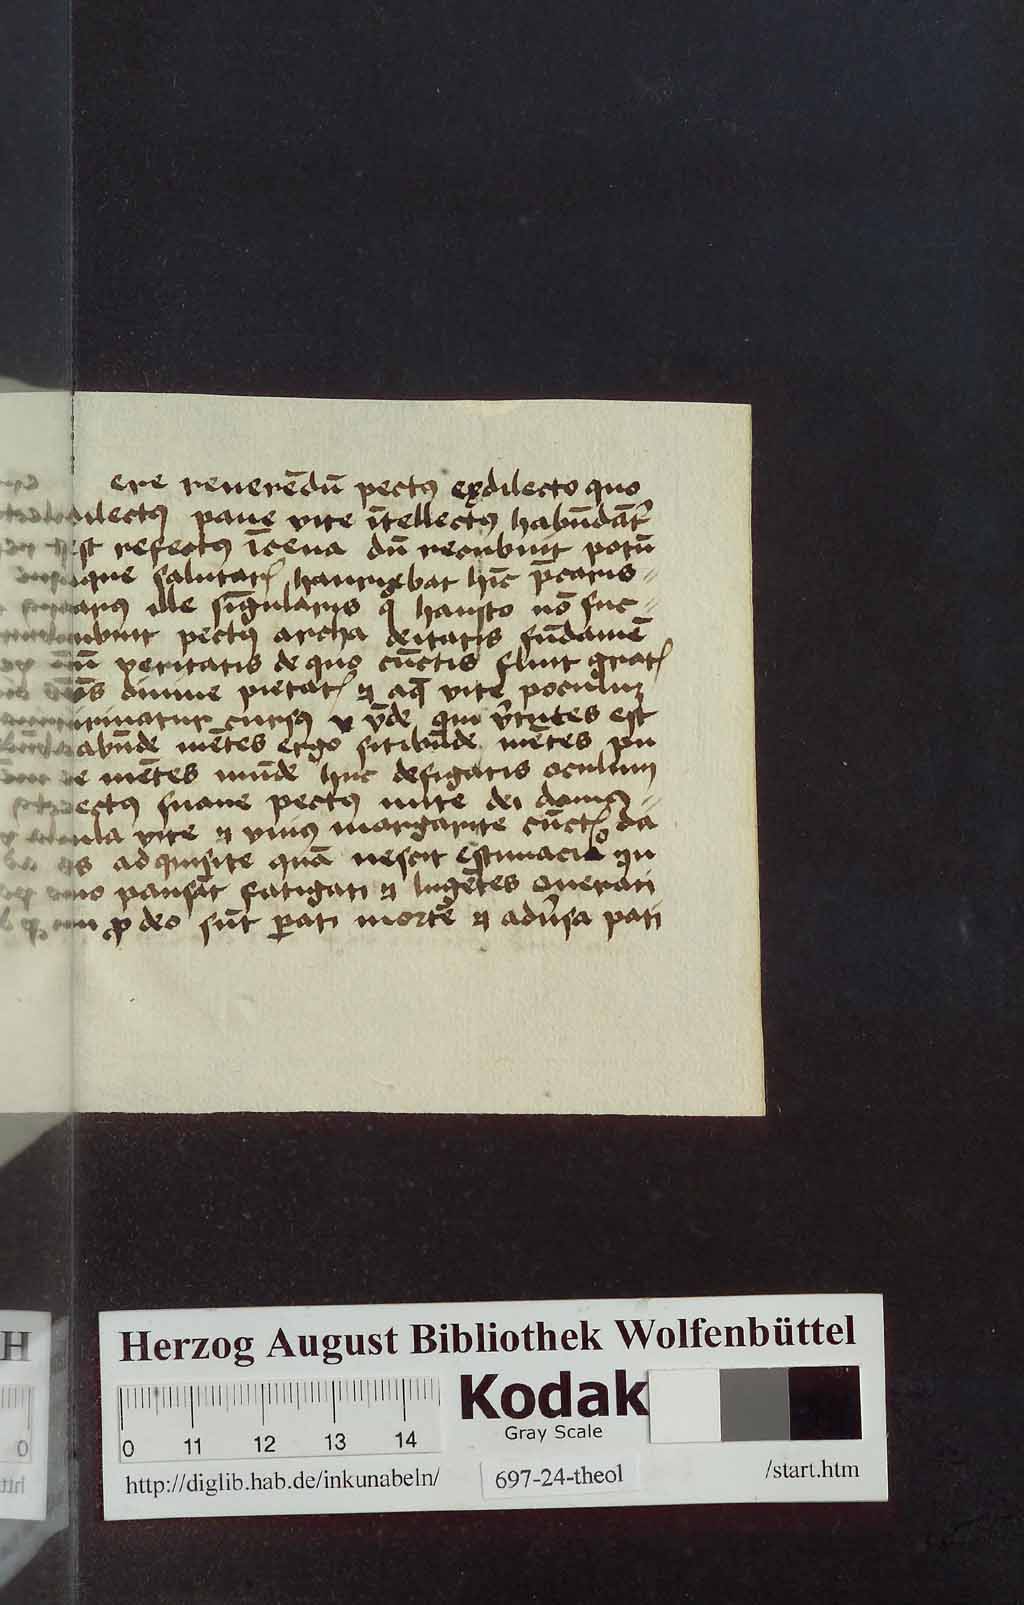 ere reuerēdū pectꝰ exdilecto quo
dilectꝰ pane vite ītellectꝰ habūdāt
est refectꝰ īcena dū recubuit potū
que salutarꝭ hauriebat hīc p̄caris⸗
arꝰ ille sīgularis q hausto nō suc⸗
ubuit pectꝰ archa deitatis fūdamē
ū veritatis de quo cūctis fluit gratꝭ
ōs diuine pietatꝭ ⁊ aq̄ vite poculum
irinatur cursꝰ v v̄de qui v̄tutes est
abūde mētes ergo sitibūde mētes pu
e mētes mūde huc defigatis oculum
ectꝰ suaue pectꝰ mite dei domꝰ⸗
ula vite ⁊ viuꝰ margarite cūctꝭ da
s adquisite quā nescit estimacio qu
no pausāt fatigati ⁊ lugētes onerati
ꝓ deo sūt ꝑati mortē ⁊ adūsa pati
Herzog August Bibliothek Wolfenbüttel
0 11 12 13 14
Kodak
Gray Scale
http://diglib.hab.de/inkunabeln/ 697-24-theol /start.htm
H
0